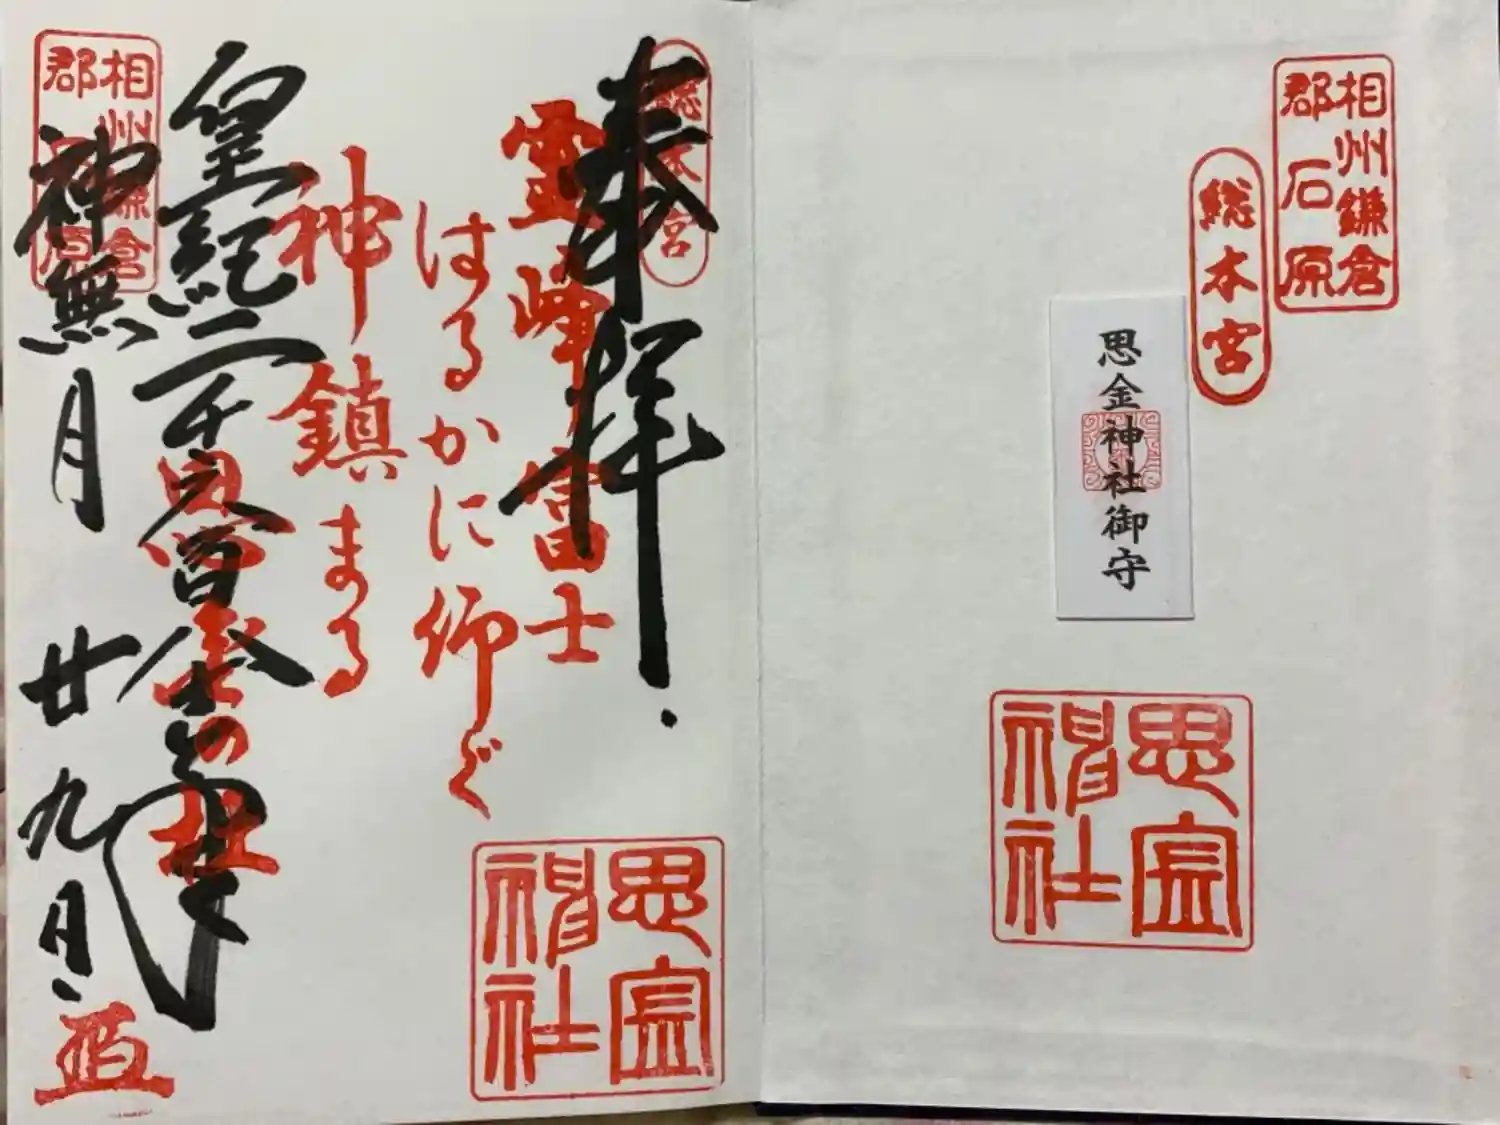 相州鎌倉
郡石原
総本宮
思金神社御守
思金
神社
総本宮
奉拝
霊峰富士
はるかに仰ぐ
神鎮まる
思金の社
皇紀二千六百八 年
神無月廿九日
相州鎌倉
郡石原
思金
神社